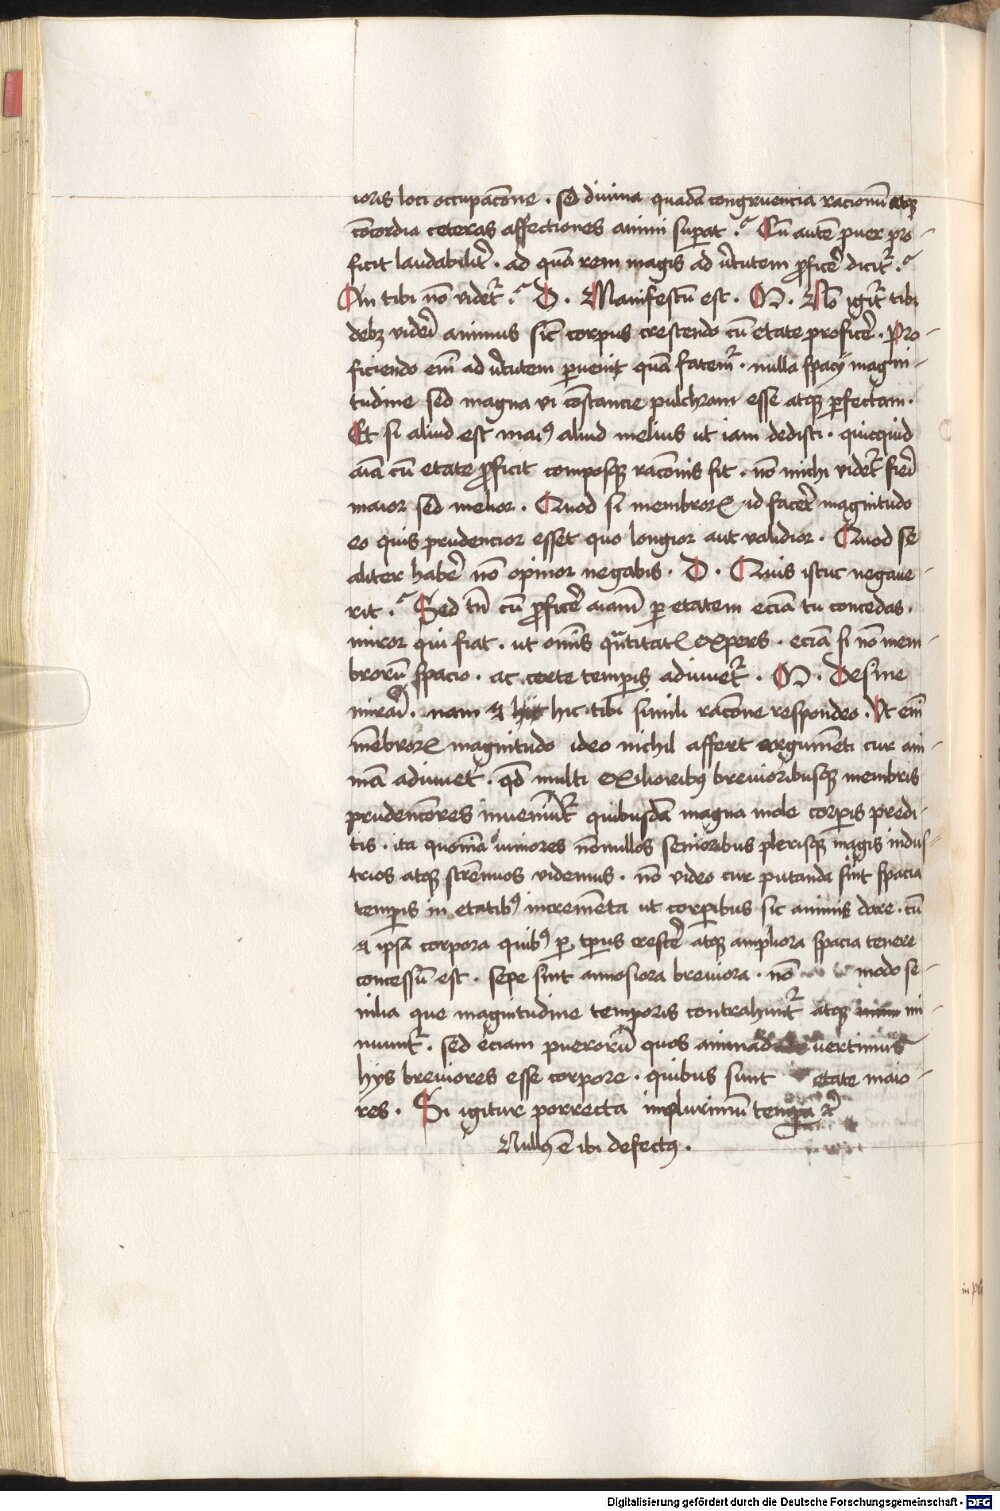 ioris loci occupac̄one · sed diuina quadā congruencia racionū atqꝫ
cōcordia ceteras affectiones animi suꝑat · Cū autē puer pro-
ficit laudabilit̄ · ad quā rem magis ad v̄tutem ꝓfice̅ dicit᷑ ·
An tibi nō videt᷑ · D · Manifestū est · M · Nō igit᷑ tibi
debꝫ vidēi animus sic̄ corpus crescendo cū etate proficē · Pro-
ficiendo em̄ ad v̄tutem ꝑuenit quā fatem᷑ · nulla spacij magni-
tudine sed magna vi cōstancie pulchram esse atqꝫ ꝑfectam ·
Et si aliud est maiꝰ aliud melius ut iam dedisti · quicquid
aīa cū etate ꝓficit composqꝫ rac̄onis fit · nō michi videt᷑ fiēi
maior sed melior · Quod si membroꝝ id facēt magnitudo
eo quis prudencior esset quo longior aut validior · Quod se
aliter habē nō opinor negabis · D · Quis istuc negaue-
rit · Sed tn̄ cū ꝓficē aīam ꝑ etatem eciā tu concedas ·
miror qui fiat · ut om̄is qūtitatꝭ expers · eciā si nō mem-
brorū spacio · ac certe temꝑis adiuuet᷑ · M · Desine
mirāi · nam ⁊ hic tibi simili rac̄one respondeo · Vt em̄
mēbroꝝ magnitudo ideo nichil affert argumēti cur ani-
mā adiuuet · qd̄ multi exilioribꝰ breuioribusqꝫ membris
prudenc̄ores inueniūt᷑ quibusdā magna mole corꝑis predi-
tis · ita quoniā iuniores nōnullos senioribus plerisqꝫ magis indus-
trios atqꝫ strēnuos videmus · nō video cur putanda sint spacia
temꝑis in etatibꝰ incremēta ut corꝑibus sic animis dare · cū
⁊ ipsā corpora quibꝰ ꝑ tp̄us crescē atqꝫ ampliora spacia tenere
concessū est · sepe sint annosiora breuiora · nō modo se-
nilia que magnitudine temporis contrahunt᷑ atqꝫ mi-
nuunt᷑ · sed eciam puerorū quos animaduertimus
hys breuiores esse corpore · quibus sunt etate maio-
res · Si igitur porrecta inplurimū tempa ꝛc̄
Nullꝰ ē ibi defectꝰ ·
in
Digitalisierung gefördert durch die Deutsche Forschungsgemeinschaft - DFG